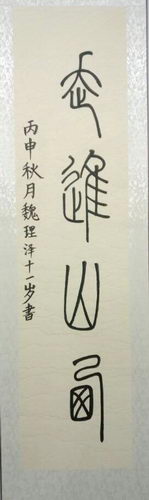 走進山西
丙申秋月魏珵泽十一岁書